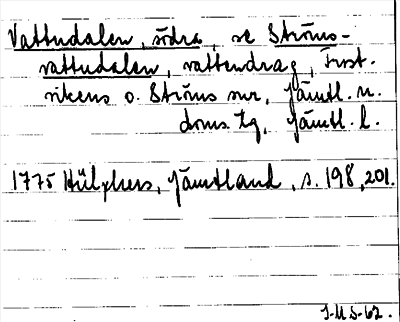 Vattudalen, södra, se Ströms-
vattudalen, vattendrag, Frost-
vikens o. Ströms snr, Jämtl. n.
doms. tg, Jämtl. l.
1775 Hülphers, Jämtland, s. 198, 201.
J-M S-62.